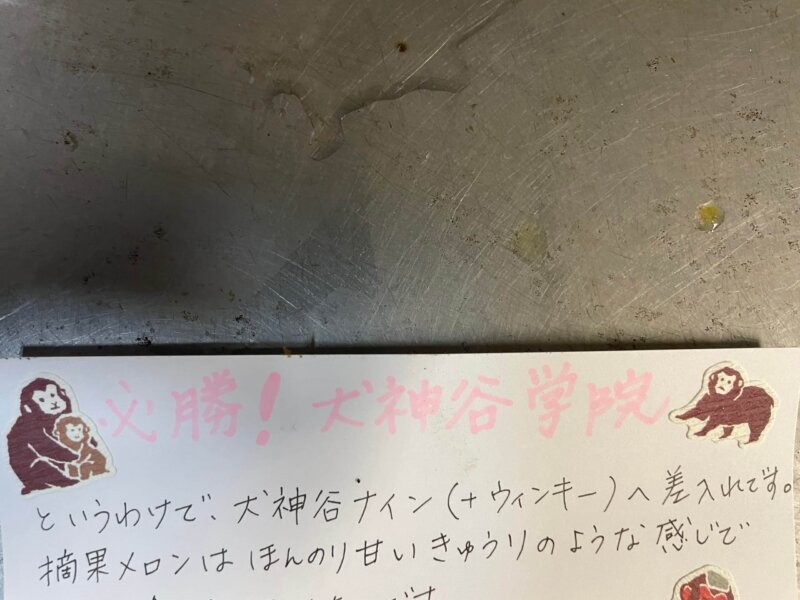 必勝!犬神谷学院
というわけで、犬神谷ナイン(+ウィンキー)へ差入れです。
摘果メロンはほんのり甘いきゅうりのような感じで